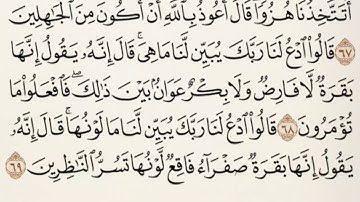 أَتَتَّخِذُنَا هُزُوًا قَالَ أَعُوذُ بِٱللَّهِ أَنْ أَكُونَ مِنَ ٱلْجَٰهِلِينَ
٦٧ قَالُوا۟ ٱدْعُ لَنَا رَبَّكَ يُبَيِّن لَّنَا مَا هِىَ ۚ قَالَ إِنَّهُۥ يَقُولُ إِنَّهَا
بَقَرَةٌ لَّا فَارِضٌ وَلَا بِكْرٌ عَوَانٌۢ بَيْنَ ذَٰلِكَ ۖ فَٱفْعَلُوا۟ مَا
تُؤْمَرُونَ ٦٨ قَالُوا۟ ٱدْعُ لَنَا رَبَّكَ يُبَيِّن لَّنَا مَا لَوْنُهَا ۚ قَالَ إِنَّهُۥ
يَقُولُ إِنَّهَا بَقَرَةٌ صَفْرَآءُ فَاقِعٌ لَّوْنُهَا تَسُرُّ ٱلنَّٰظِرِينَ ٦٩